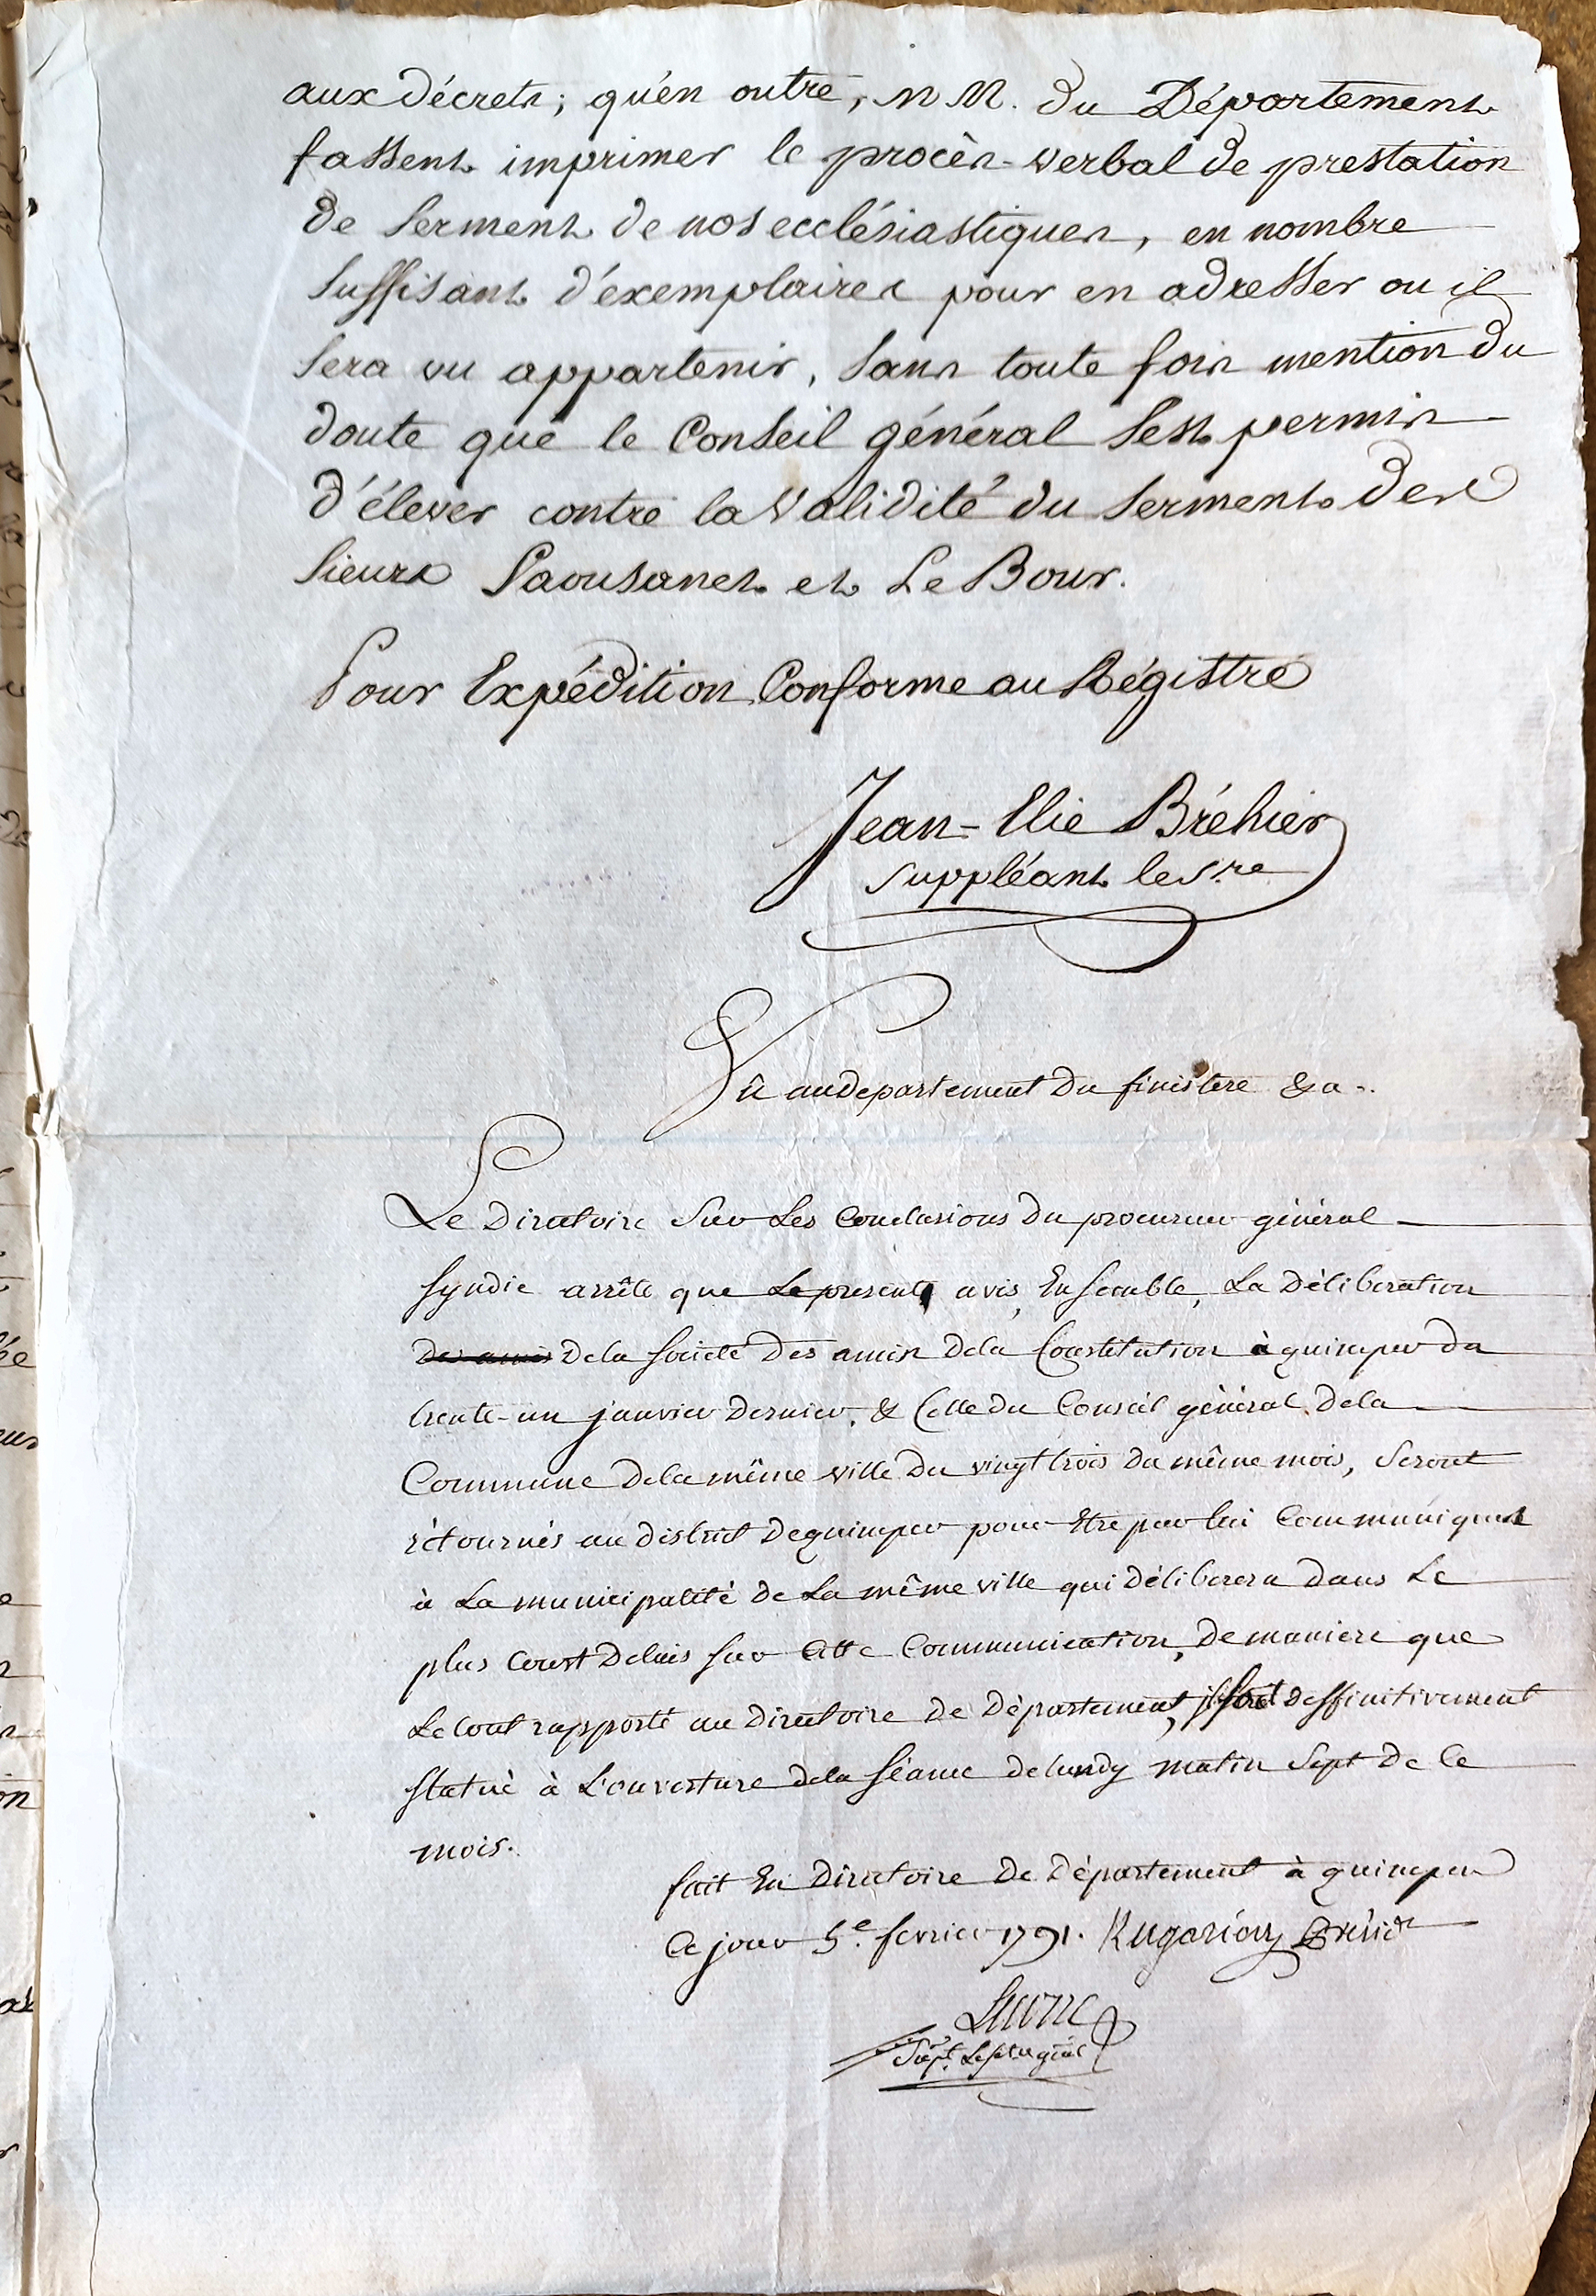 aux décrets; qu'én outre, MM. du Département
fassent imprimer le procès-verbal de prestation
de serment de nos ecclésiastiques, en nombre
suffisant d'éxemplaires pour en adresser ou il
sera vu appartenir, sans toute fois mention du
doute que le Conseil général s'est permis
d'élever contre la validité du serment des
sieurs Paousanet et Le Bour.
Pour Expédition Conforme au Régistre
Jean-Elie Bréhier
suppléant le S.re
Vû au departement du finistere &a..
Le Directoire sur Les Conclusions du procureur général
syndic arrête que Le present avis, Ensemble, La Déliberation
Des amis De la societé Des amis De la Constitution à quimper du
trente-un janvier Dernier, & Celle du Conseil général de la
Commune De la même ville Du vingt trois du même mois, seront
rétournés au district De quimper pour Etre par lui Communiqués
à La municipalité de La même ville qui Délibérera Dans Le
plus Court Delais sur Cette Communication, De maniere que
Le tout rapporté au Directoire De Département, il soit deffinitivement
statué à L'ouverture dela séance de lundy matin sept De Ce
mois.
fait En Directoire De Département à quimper
Ce jour 5e. fevrier 1791. Kergariou Présidt